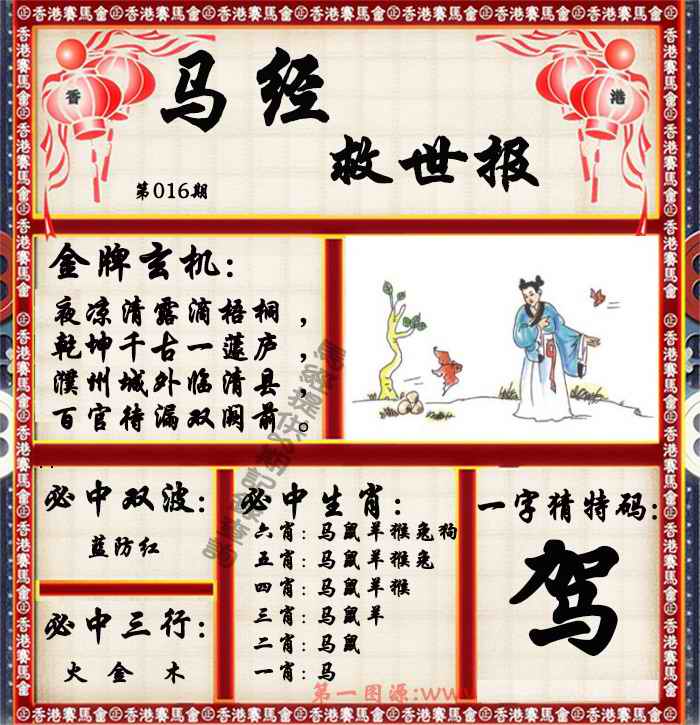 香港賽馬會
香 港
马经
救世报
第016期
金牌玄机：
夜凉清露滴梧桐，
乾坤千古一蘧庐，
濮州城外临清县，
百官待漏双阙前。
必中双波：
蓝防红
必中三行：
火 金 木
必中生肖：
六肖：马鼠羊猴兔狗
五肖：马鼠羊猴兔
四肖：马鼠羊猴
三肖：马鼠羊
二肖：马鼠
一肖：马
一字猜特码：
驾
第一图源:www